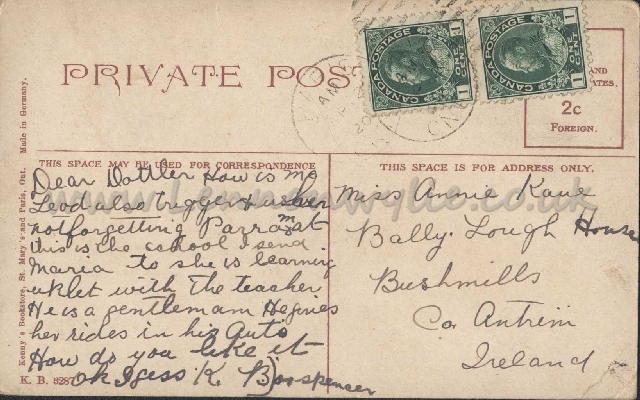 PRIVATE POST
CANADA POSTAGE
1 CENT 1
CANADA POSTAGE
1 CENT 1
AND
TES.
2c
FOREIGN.
THIS SPACE MAY BE USED FOR CORRESPONDENCE
THIS SPACE IS FOR ADDRESS ONLY.
Dear Dottler How is mc
Leod also trigger
not forgetting at
this is the school I send
Maria to she is learning
with the teacher
He is a gentleman He gives
her rides in his auto
How do you like it
ok I gess K. B
Miss Annie Kane
Bally. Lough House
Bushmills
Co. Antrim
Ireland
Kenny's Bookstore, St. Mary's and Paris, Ont. Made in Germany.
K. B. 5287
.co.uk